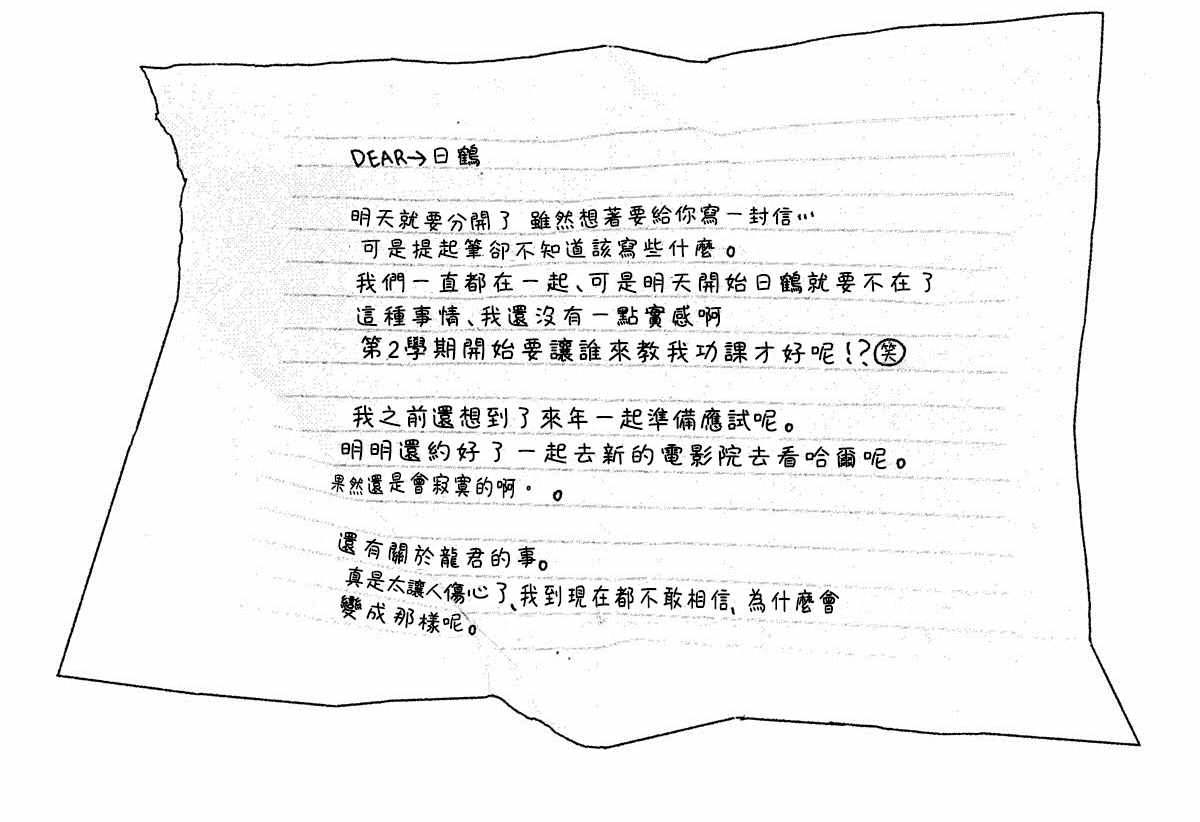 DEAR→日鶴
明天就要分開了 雖然想著要給你寫一封信…
可是提起筆卻不知道該寫些什麼。
我們一直都在一起、可是明天開始日鶴就要不在了
這種事情、我還沒有一點實感啊
第2學期開始要讓誰來教我功課才好呢!?㊟笑
我之前還想到了來年一起準備應試呢。
明明還約好了一起去新的電影院去看哈爾呢。
果然還是會寂寞的啊・ 。
還有關於龍君的事。
真是太讓人傷心了、我到現在都不敢相信、為什麼會
變成那樣呢。